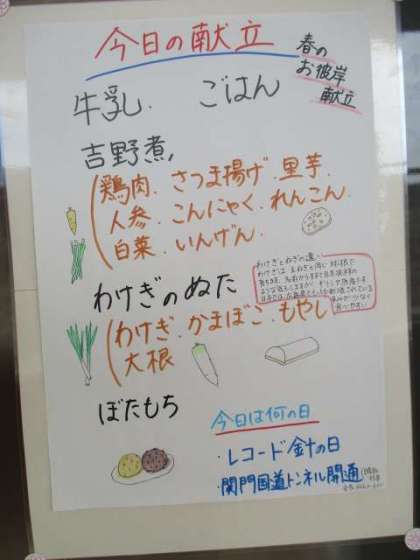 今日の献立
春の
お彼岸
献立
牛乳. ごはん
吉野煮
鶏肉. さつま揚げ. 里芋.
人参. こんにゃく. れんこん.
白菜. いんげん.
わけぎとねぎの違い
わけぎのぬた
わけぎ. かまぼこ. もやし
大根
ぼたもち
今日は何の日
・レコード針の日
・関門国道トンネル開通